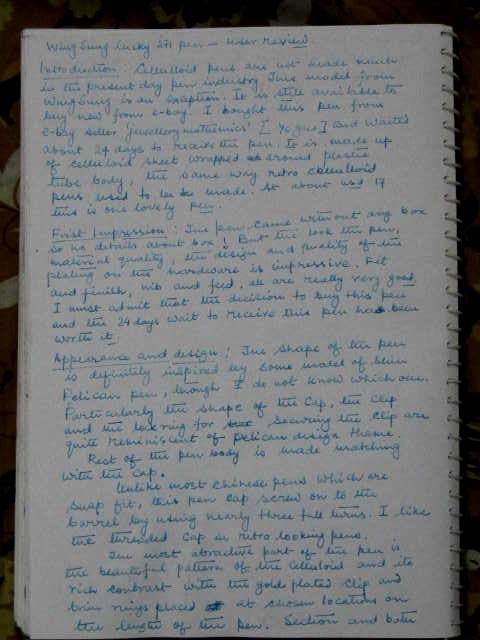 Wing Sung Lucky 271 pen - User review
Introduction: Celluloid pens are not made much
in the present day pen industry. This model from
Wing Sung is an exception. It is still available to
buy new from e-bay. I bought this pen from
e-bay seller 'jewellerymathemics' [ ] and waited
about 24 days to receive the pen. It is made up
of celluloid sheet wrapped around plastic
tube body, the same way retro celluloid
pens used to be made. At about usd 17
this is one lovely pen.
First Impression: The pen came without any box
so no details about box! But the look the pen,
material quality, the design and quality of the
plating on the hardware is impressive. Fit
and finish, nib and feed, all are really very good.
I must admit that the decision to buy this pen
and the 24 days wait to receive this pen has been
worth it.
Appearance and design: The shape of the pen
is definitely inspired by some model of
Pelican pen, though I do not know which one.
Particularly the shape of the cap, the clip
and the lock ring for securing the clip are
quite reminiscent of pelican design theme.
Rest of the pen body is made matching
with the cap.
Unlike most chinese pens which are
snap fit, this pen cap screw on to the
barrel by using nearly three full turns. I like
the threaded cap in retro looking pens.
The most attractive part of the pen is
the beautiful pattern of the celluloid and its
rich contrast with the gold plated clip and
trim rings placed at chosen locations on
the length of the pen. Section and both